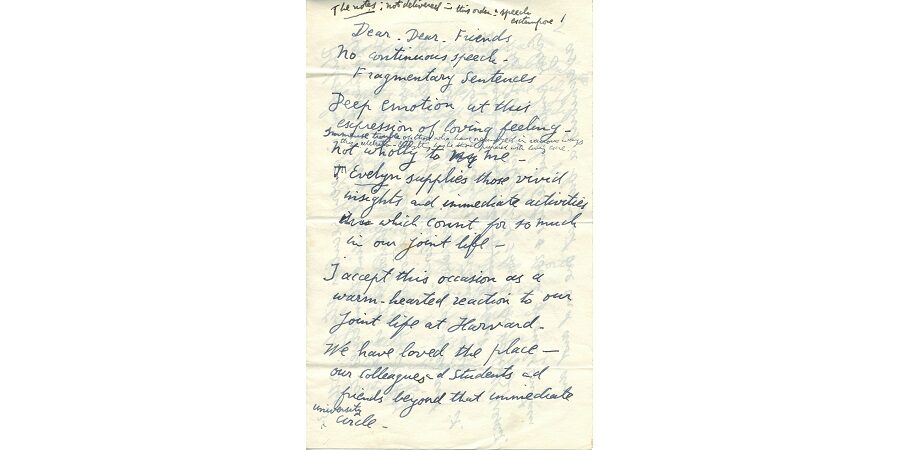 The notes; not delivered in this order: speech
extempore!
Dear - Dear - Friends
No continuous speech -
Fragmentary Sentences
Deep emotion at this
expression of loving feeling -
Immense trouble of those who have arranged in various ways
this celebration with loving care.
not wholly to me -
For Evelyn supplies those vivid
insights and immediate activities
which count for so much
in our joint life -
I accept this occasion as a
warm-hearted reaction to our
joint life at Harvard -
We have loved the place -
our colleagues d students ad
friends beyond that immediate
university
circle -